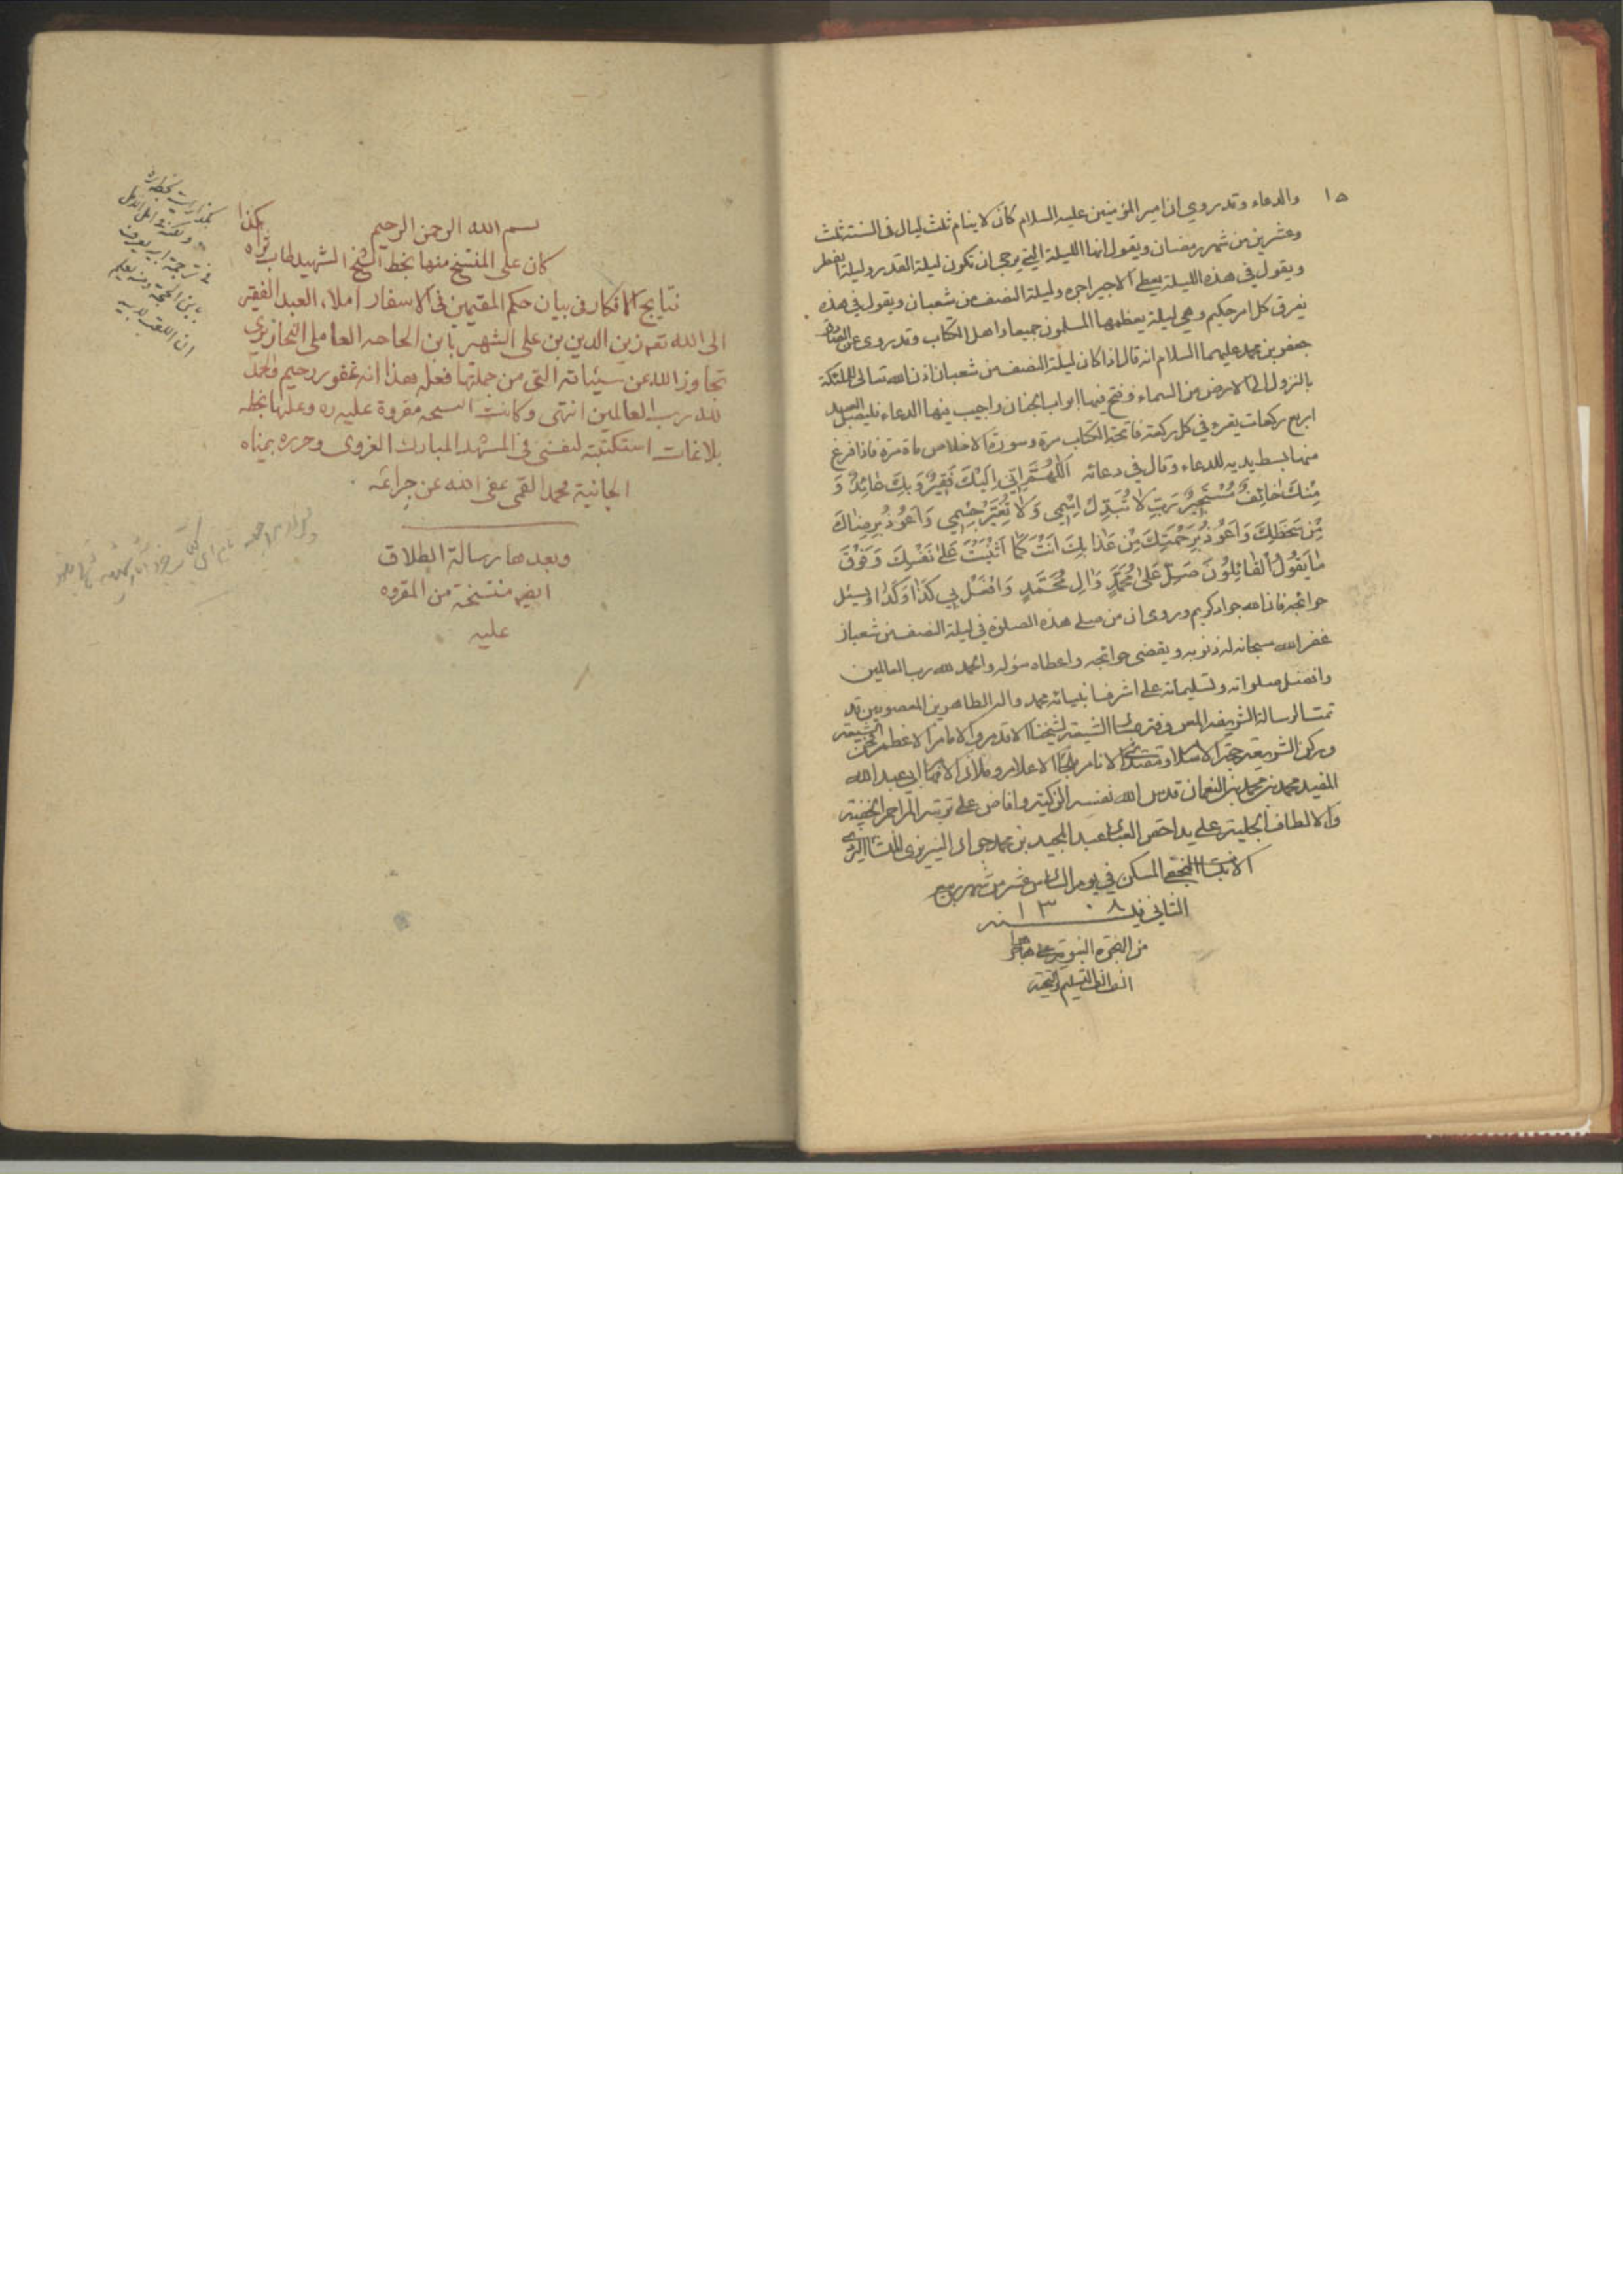 ١٥
والدعاء وقد روي ان امير المؤمنين عليه السلام كان لا ينام ثلث ليال في السنة ثلث
وعشرين من شهر رمضان ويقول انها الليلة التي يرجى ان تكون ليلة القدر وليلة الفطر
ويقول في هذه الليلة يعطى الاجير اجره وليلة النصف من شعبان ويقول في هذه
يفرق كل امر حكيم وهي ليلة يعظمها المسلمون جميعا واهل الكتاب وقد روى عن الصادق
جعفر بن محمد عليهما السلام انه قال اذا كان ليلة النصف من شعبان اذن الله تعالى للملئكة
بالنزول الى الارض من السماء وفتح فيها ابواب الجنان واجيب فيها الدعاء فليصل العبد
اربع ركعات يقرء في كل ركعة فاتحة الكتاب مرة وسورة الاخلاص ماة مرة فاذا فرغ
منها بسط يديه للدعاء وقال في دعائه اَللّهُمَّ اِنّي اِلَيْكَ فَقيرٌ وَبِكَ عائِذٌ وَ
مِنْكَ خائِفٌ مُسْتَجيرٌ رَبِّ لا تُبَدِّلْ اِسْمي وَلا تُغَيِّرْ جِسْمي وَاَعوُذُ بِرِضاكَ
مِنْ سَخَطِكَ وَاَعوُذُ بِرَحْمَتِكَ مِنْ عَذابِكَ اَنْتَ كَما اَثْنَيْتَ عَلى نَفْسِكَ وَفَوْقَ
ما يَقوُلُ القائِلوُنَ صَلِّ عَلى مُحَمَّدٍ وَالِ مُحَمَّدٍ وَافْعَلْ بي كَذا وَكَذا ويسئل
حوائجه فان الله جواد كريم وروى ان من صلى هذه الصلوة في ليلة النصف من شعبان
غفر الله سبحانه له ذنوبه ويقضى حوائجه واعطاه سؤله والحمد لله رب العالمين
وافضل صلواته وتسليماته على اشرف انبيائه محمد واله الطاهرين المعصومين قد
تمت الرسالة الشريفة المعروفة بمسار الشيعة لشيخنا الاقدم والامام الاعظم محيى الشيعة
وركن الشريعة حجة الاسلام ومقتدى الانام ملجأ الاعلام وملاذ ابي عبد الله
المفيد محمد بن محمد بن النعمان قدس الله نفسه الزكية وافاض على تربته المراحم الخفية
والالطاف الجلية على يد احقر العباد عبد المجيد بن محمد جواد
النجفي المسكن في يوم السادس عشر من شهر ربيع
الثاني سنه ١٣٠٨
من الهجرة النبوية على هاجرها
الف الف التسليم والتحية
بسم الله الرحمن الرحيم هكذا
كان على المنتسخ منها بخط الشيخ الشهيد طاب ثراه
نتايج الافكار في بيان حكم المقيمين في الاسفار املاء العبد الفقير
الى الله تعه زين الدين بن على الشهير بابن الحاجه العاملى النحاريري
تجاوز الله عن سيئاته التي من جملتها فعله هذا انه غفور رحيم والحمد
لله رب العالمين انتهى وكانت النسخه مقروة عليه ره وعليها بخطه
بلاغات استكتبته لنفسى في المشهد المبارك الغروى وحرره بيمناه
الجانية محمد القمى عفى الله عن جرائمه
وبعدها رسالة الطلاق
ايضه منتسخة من المقروه
عليه
هكذا رايت بخطه ره
ولكنه في امل الامل
في ترجمة ابيه يعرف
بابن الحجة ومنه يعلم
ان اللقب لابيه